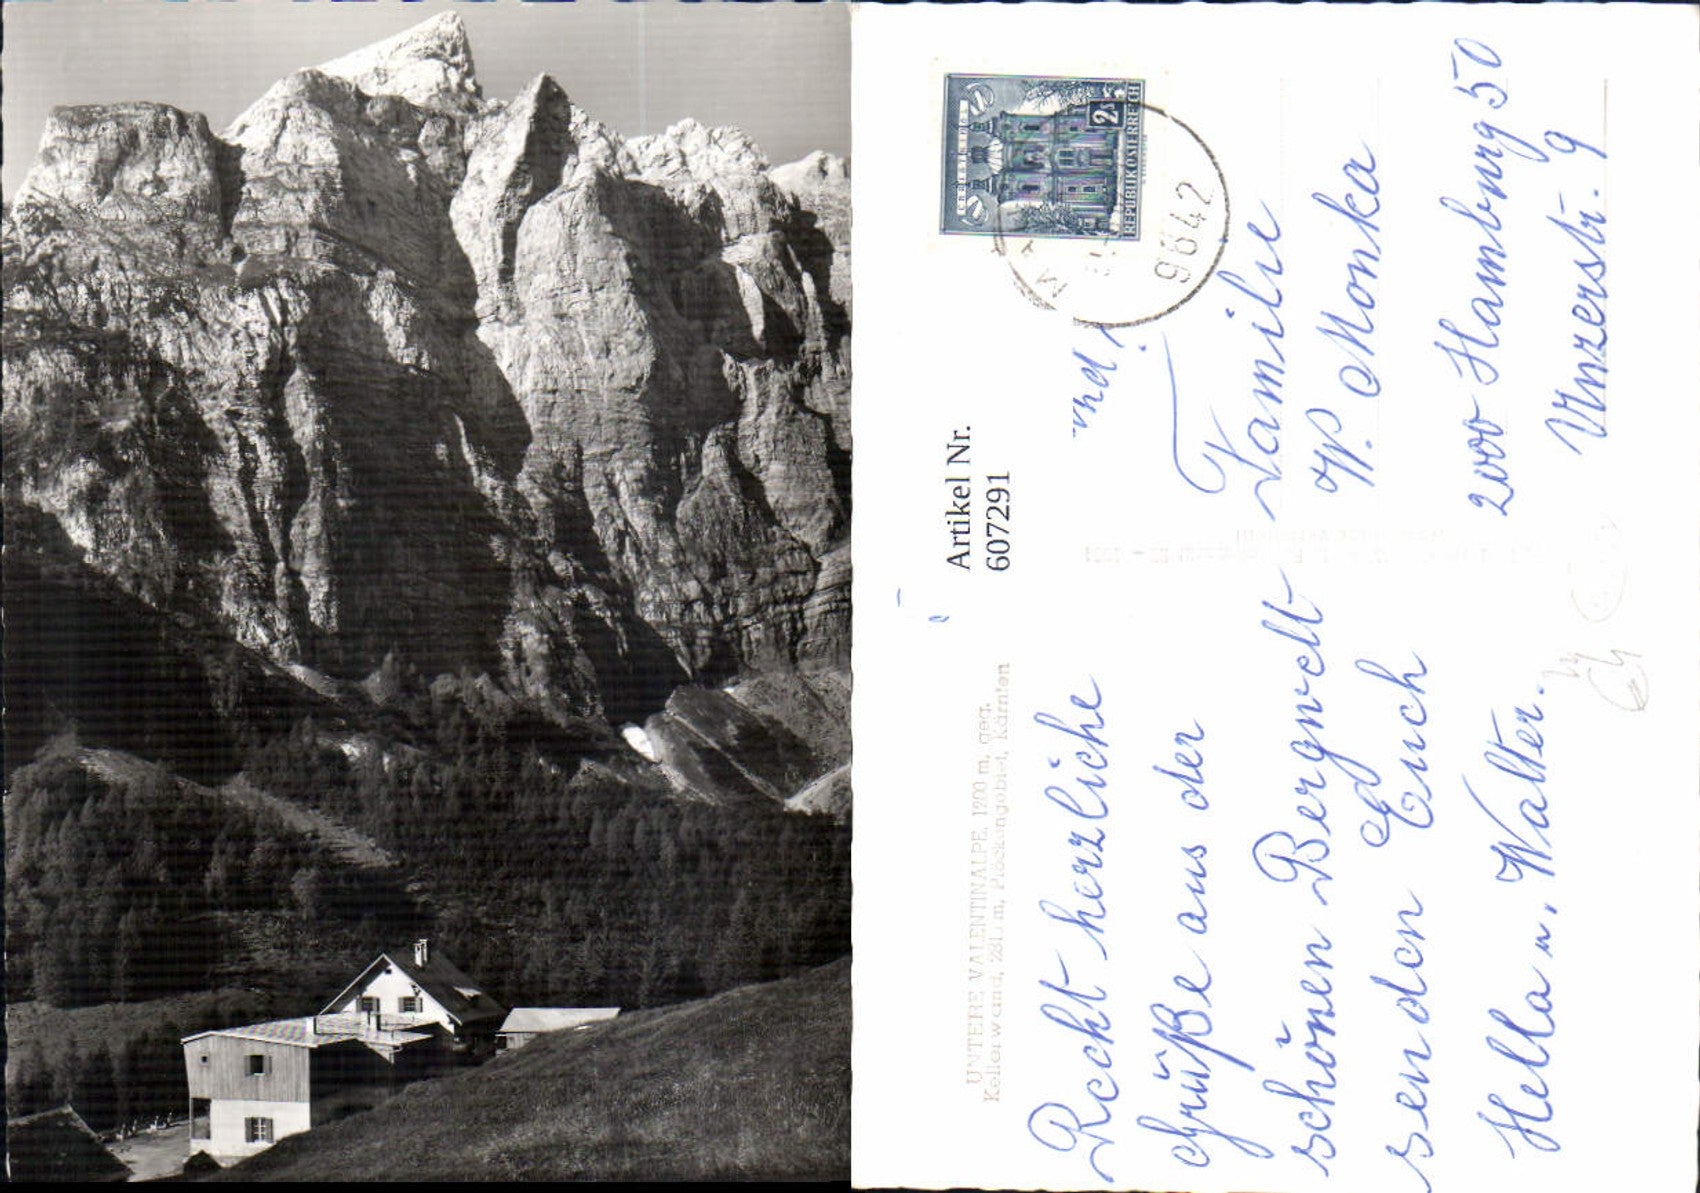 UNTERE VALENTINALPE, 1200 m, geg.
Kellerwand, m, Plöckengebiet, Kärnten
Recht herzliche
Grüße aus der
schönen Bergwelt
senden Euch
Hella u. Walter.
Artikel Nr.
607291
2s
REPUBLIK ÖSTERREICH
9642
und
Familie
W. Monka
2000 Hamburg 50
Unzerstr. 9